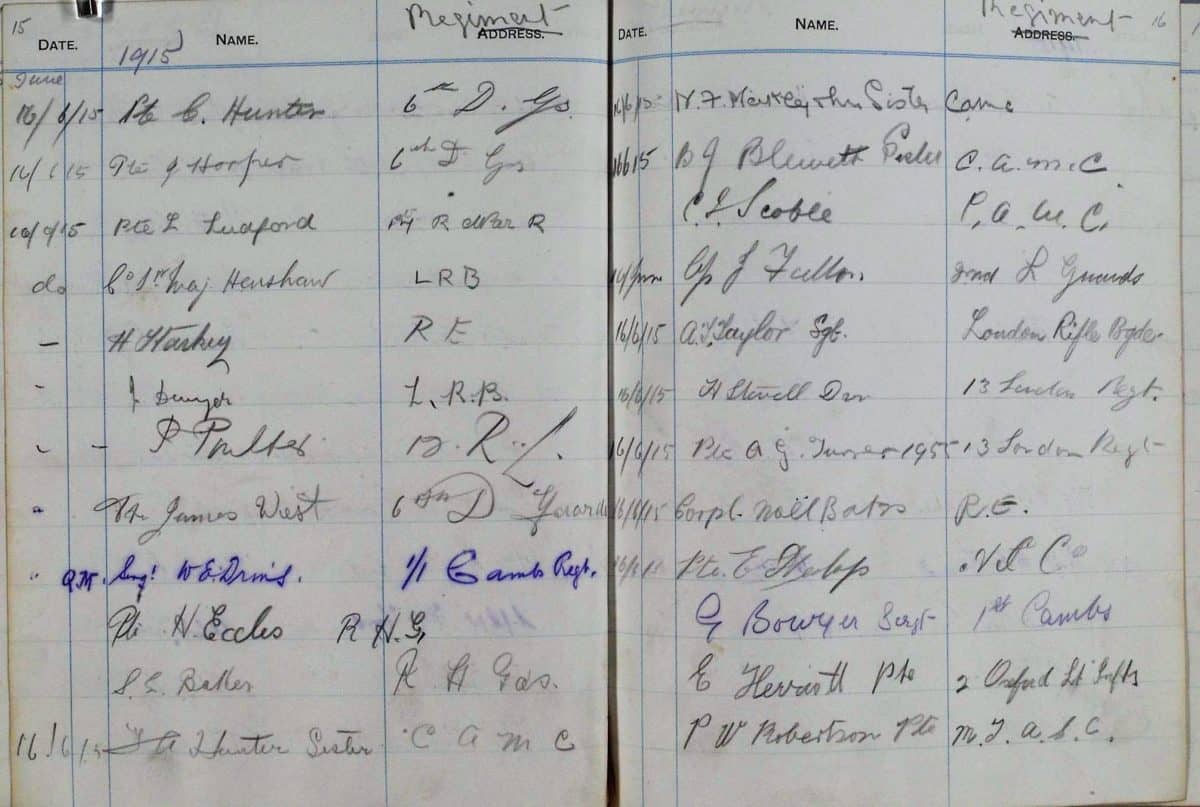 15
DATE. NAME. Regiment ADDRESS.
1915
June
16/6/15 Pte C. Hunter 6th D. Gs.
Pte J Hooper 6th D Gs
Pte L Ludford R
do Co Sr Maj Henshaw L R B
— H Starkey R E
J Dwyer L. R. B.
P Poulter
Pte James West 6th D Guards
Q.M. Sergt W. E. 1/1 Cambs Regt.
Pte H. Eccles R H. G,
S. E. Baker R H Gds.
16/6/15 Hunter Sister C A M C
DATE. NAME. Regiment ADDRESS. 16
16/6/15 Sister Camc
16615 B J Blewett C. a. m. C
C. J. Scoble C. A. M. C,
Cp J Fallon. 2nd L Guards
16/6/15 A. J. Taylor Sgt. London Rifle Bgde.
16/6/15 H 13 London Regt.
16/6/15 Pte A G. Turner 1955 13 London Regt
16/6/15 Corpl. Noël Bates R. E.
Pte. E Phelps C
G Bowyer Sergt 1st Cambs
E Pte 2 Oxford Lt Infty
P W Robertson Pte M. T. A. S. C.